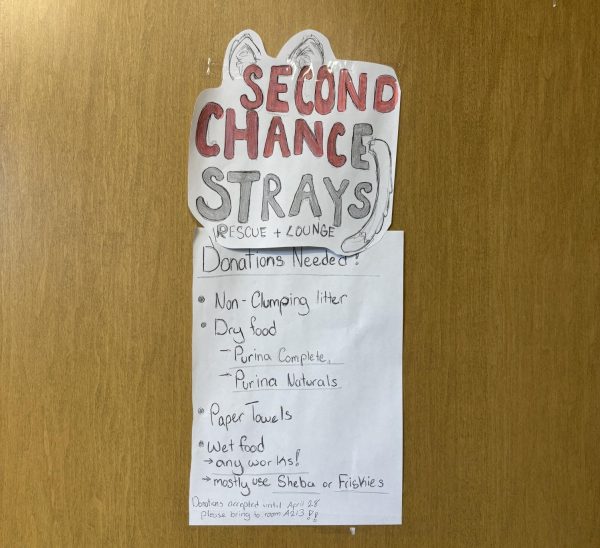 SECOND
CHANCE
STRAYS
RESCUE + LOUNGE
Donations Needed!
• Non-Clumping litter
• Dry food
→ Purina Complete,
→ Purina Naturals
• Paper Towels
• Wet food
→ any works!
→ mostly use Sheba or Friskies
Donations accepted until April 28
please bring to room A213